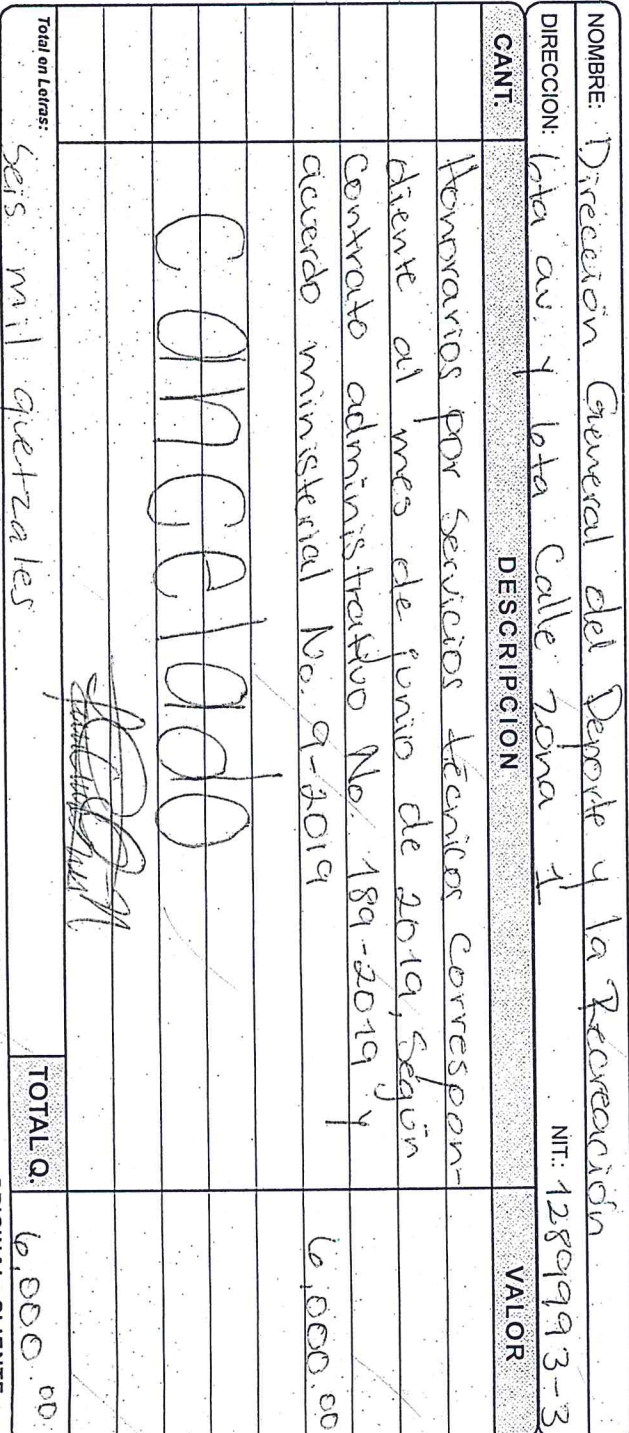 NOMBRE: Dirección General del Deporte y la Recreación
DIRECCION: 6ta av. y 6ta Calle zona 1 NIT.: 1289993-3
CANT. DESCRIPCION VALOR
Honorarios por Servicios técnicos Correspon-
diente al mes de junio de 2019, Según
Contrato administrativo No. 189-2019 y
acuerdo ministerial No. 9-2019 6,000.00
Cancelado
Total en Letras: Seis mil quetzales TOTAL Q. 6,000.00
ORIGINAL CLIENTE